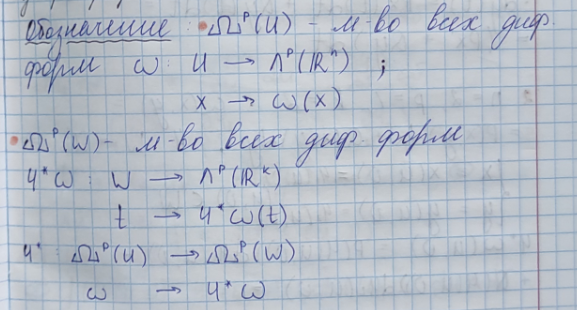 Обозначение: • Ω^p(U) - м-во всех диф.
форм ω: U → Λ^p(ℝ^n) ;
x → ω(x)
• Ω^p(W) - м-во всех диф. форм
φ*ω : W → Λ^p(ℝ^k)
t → φ*ω(t)
φ* : Ω^p(U) → Ω^p(W)
ω → φ*ω